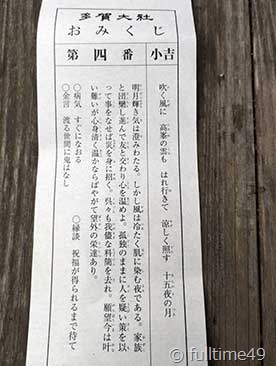 多賀大社
おみくじ
第四番
小吉
吹く風に 高峯の雲も はれ行きて 涼しく照す 十五夜の月
明月輝き気は澄みわたる。しかし風は冷たく肌に染む夜である。家族
と団欒し進んで友と交わり心を温めよ。孤独のままに人を疑い策を以
って事をなせば災を身に招く。呉々も我儘な料簡を去れ。願望今は叶
い難いが心身清く温かならばやがて望外の栄達あり。
○病気 すぐになおる ○縁談 祝福が得られるまで待て
○金言 渡る世間に鬼はなし
© fulltime49